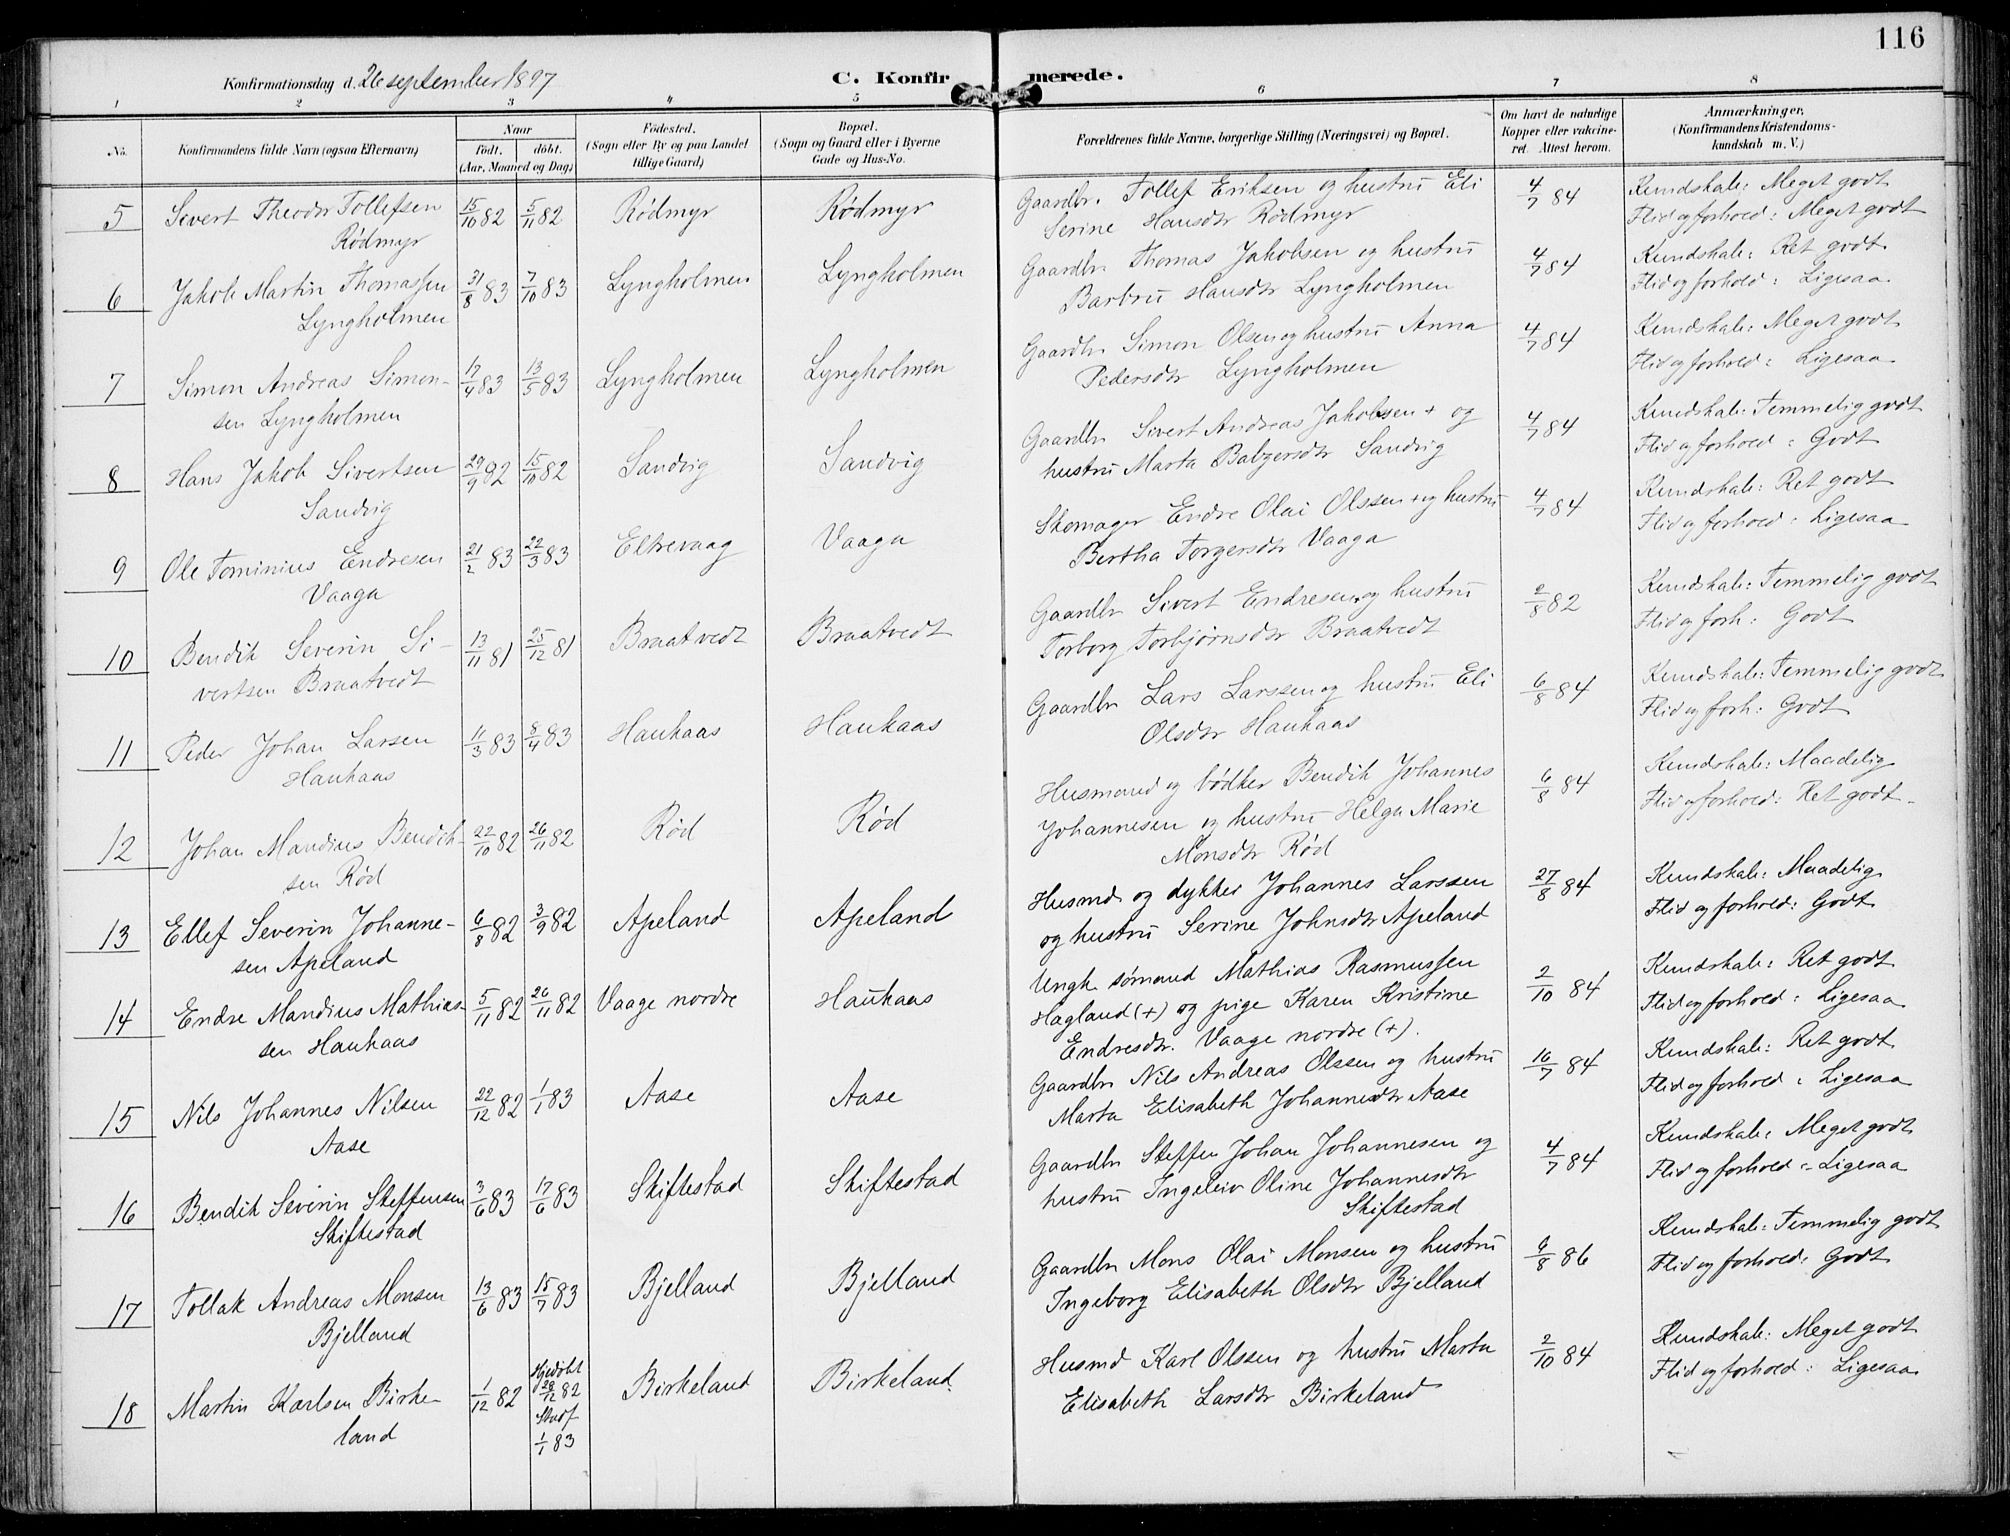 116
Konfirmationsdag d. 26 september 1897
C. Konfirmerede.
1 2 3 4 5 6 7 8
No.
Konfirmandens fulde Navn (ogsaa Efternavn)
Naar
født. døbt.
(Aar, Maaned og Dag)
Fødested.
(Sogn eller By og paa Landet
tillige Gaard)
Bopæl.
(Sogn og Gaard eller i Byerne
Gade og Hus-No.
Forældrenes fulde Navne, borgerlige Stilling (Næringsvei) og Bopæl.
Om havt de naturlige
Kopper eller vakcine-
ret. Attest herom.
Anmærkninger,
(Konfirmandens Kristendoms-
kundskab m. V.)
5 Sivert Theodor Tollefsen 15/10 82 5/11 82 Rödmyr Rödmyr Gaardbr. Tollef Eriksen og hustru Eli 4/7 84 Kundskab: Meget godt
Rödmyr Serine Hansdtr Rödmyr Flid og forhold: Meget godt
6 Jakob Martin Thomassen 31/8 83 7/10 83 Lyngholmen Lyngholmen Gaardbr Thomas Jakobsen og hustru 4/7 84 Kundskab: Ret godt
Lyngholmen Barbru Hansdtr Lyngholmen Flid og forhold: Ligesaa
7 Simon Andreas Simon- 17/4 83 13/5 83 Lyngholmen Lyngholmen Gaardbr Simon Olsen og hustru Anna 4/7 84 Kundskab: Meget godt
sen Lyngholmen Pedersdtr Lyngholmen Flid og forhold: Ligesaa
8 Hans Jakob Sivertsen 29/9 92 15/10 82 Sandvig Sandvig Gaardbr Sivert Andreas Jakobsen + og 4/7 84 Kundskab: Temmelig godt
Sandvig hustru Marta Babzersdtr Sandvig Flid og forhold: Godt
9 Ole Tominius Endresen 21/2 83 22/3 83 Eltrevaag Vaaga Skomager Endre Olai Olssen + og hustru 4/7 84 Kundskab: Ret godt
Vaaga Bertha Torgersdtr Vaaga Flid og forhold: Ligesaa
10 Bendik Severin Si- 13/11 81 25/12 81 Braatvedt Braatvedt Gaardbr Sivert Endresen og hustru 2/8 82 Kundskab: Temmelig godt
vertsen Braatvedt Torborg Torbjørnsdtr Braatvedt Flid og forh: Godt
11 Peder Johan Larsen 11/3 83 8/4 83 Haukaas Haukaas Gaardbr Lars Larssen og hustru Eli 6/8 84 Kundskab: Temmelig godt
Haukaas Olsdtr Haukaas Flid og forh: Godt
12 Johan Mandius Bendik- 22/10 82 26/11 82 Rød Rød Husmand og bødker Bendik Johannes 6/8 84 Kundskab: Maadelig
sen Rød Johannesen og hustru Helga Marie Flid og forhold: Ret godt
Monsdtr Rød
13 Ellef Severin Johanne- 6/8 82 3/9 82 Apeland Apeland Husmd og dykker Johannes Larssen 27/8 84 Kundskab: Maadelig
sen Apeland og hustru Serine Johnsdtr Apeland Flid og forhold: Godt
14 Endre Mandius Mathias- 5/11 82 26/11 82 Vaage nordre Haukaas Ungk. sømand Mathias Rasmussen 2/10 84 Kundskab: Ret godt
sen Haukaas Hagland (+) og pige Karen Kristine Flid og forhold: Ligesaa
Endresdtr. Vaage nordre (+).
15 Nils Johannes Nilsen 22/12 82 1/1 83 Aase Aase Gaardbr Nils Andreas Olssen og hustru 16/7 84 Kundskab: Ret godt
Aase Marta Elisabeth Johannesdtr Aase Flid og forhold: Ligesaa
16 Bendik Severin Steffensen 3/6 83 17/6 83 Skiftestad Skiftestad Gaardbr Steffen Johan Johannesen og 4/7 84 Kundskab: Meget godt
Skiftestad hustru Ingeleiv Oline Johannesdtr Flid og forhold: Ligesaa
Skiftestad
17 Tollak Andreas Monsen 13/6 83 15/7 83 Bjelland Bjelland Gaardbr Mons Olai Monsen og hustru 6/8 86 Kundskab: Temmelig godt
Bjelland Ingeborg Elisabeth Olsdtr Bjelland Flid og forhold: Godt
18 Martin Karlsen Birke- 1/12 82 Hjedøbt 28/12 82 Birkeland Birkeland Husmd Karl Olssen og hustru Marta 2/10 84 Kundskab: Meget godt
land Stadf 1/1 83 Elisabeth Larsdtr Birkeland Flid og forhold: Ligesaa